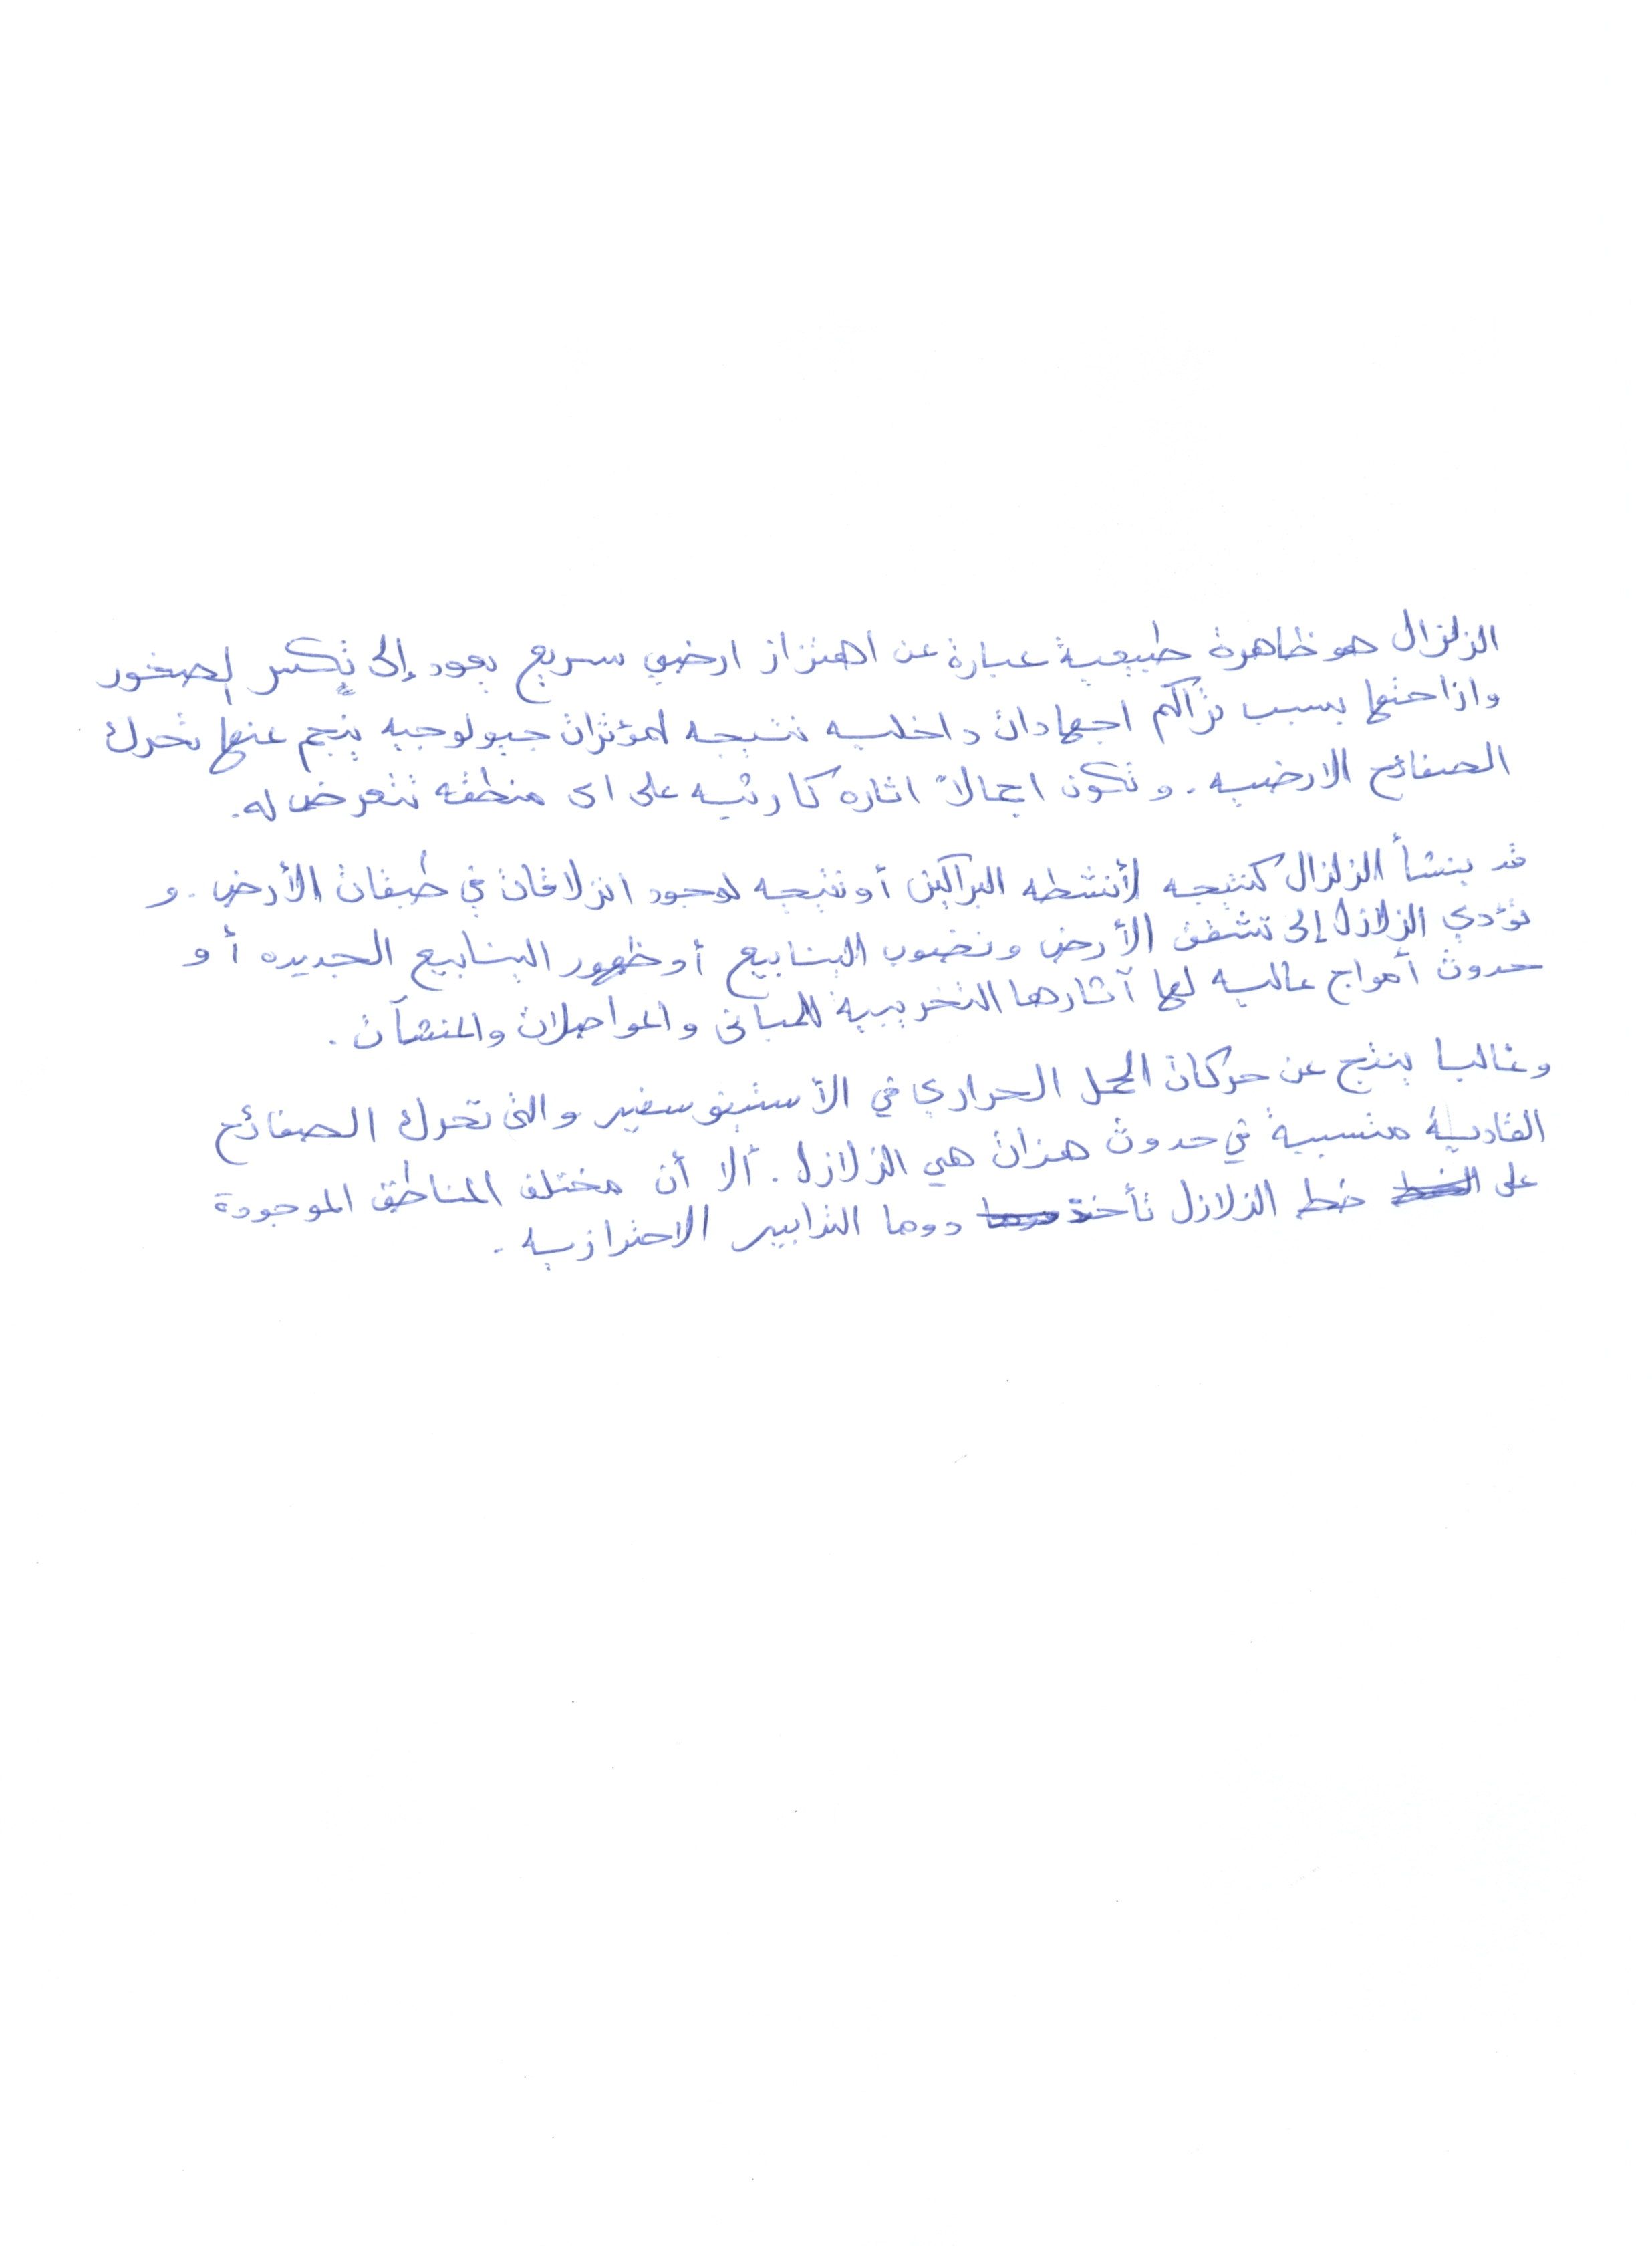 الزلزال هو ظاهرة طبيعية عبارة عن اهتزاز ارضي سريع يعود إلى تكسر الصخور
وازاحتها بسبب تراكم اجهادات داخليه نتيجه لمؤثرات جيولوجيه ينجم عنها تحرك
الصفائح الارضيه . وتكون اجمالاً اثاره كارثيه على اى منطقه تتعرض له .
قد ينشأ الزلزال كنتيجه لأنشطه البراكين أو نتيجه لوجود انزلاقات في طبقات الأرض . و
تؤدي الزلازل إلى تشقق الأرض ونضوب الينابيع أو ظهور الينابيع الجديده أو
حدوث أمواج عاليه لها آثارها التخريبية للمبانى والمواصلات والمنشآت .
وغالبا ينتج عن حركات الحمل الحراري في الأستينوسفير والتى تحرك الصفائح
القاديه متسببة في حدوث هزات هي الزلازل . ألا أن مختلف المناطق الموجودة
على خط الزلازل تأخذ دوما التدابير الاحترازيه .